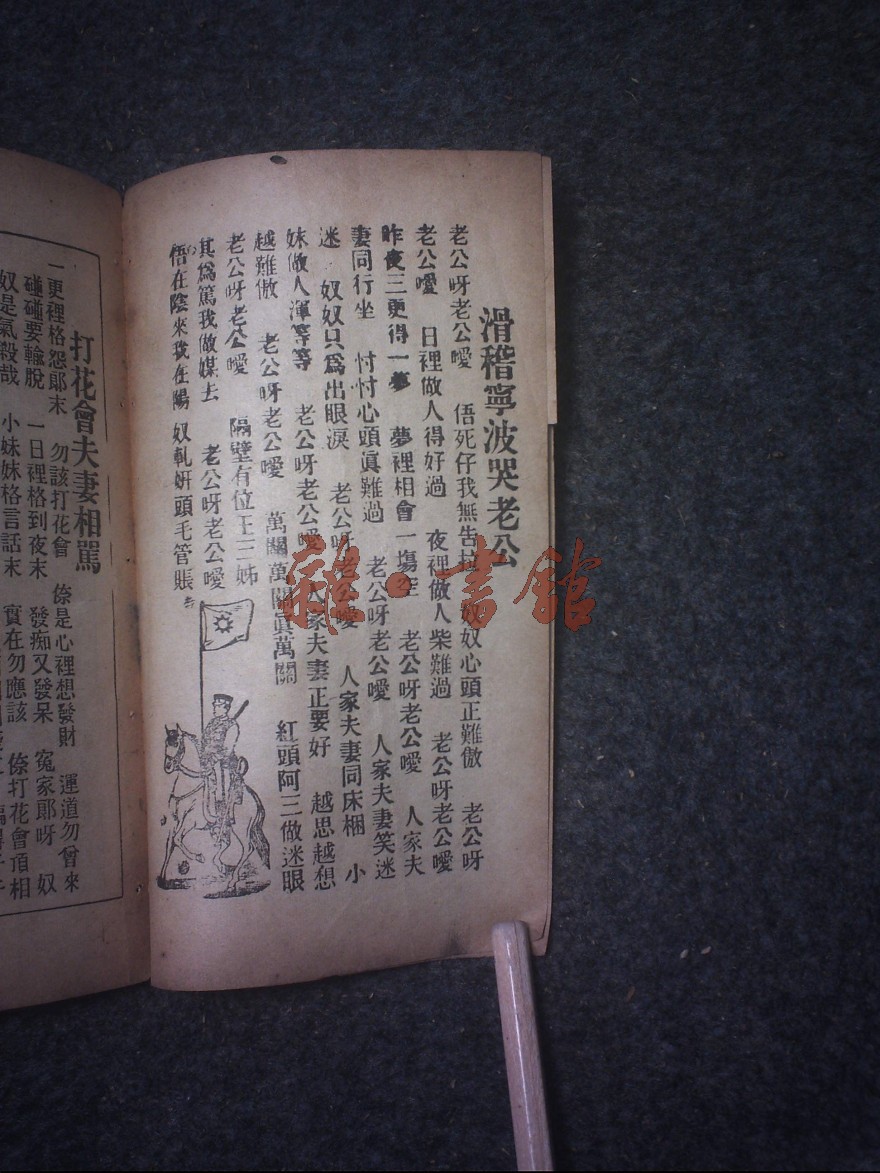 滑稽寧波哭老公
老公呀老公噯 俉死仔我無告 奴奴心頭正難傲 老公呀
老公噯 日裡做人得好過 夜裡做人柴難過 老公呀老公噯
昨夜三更得一夢 夢裡相會一塲空 老公呀老公噯 人家夫
妻同行坐 忖忖心頭眞難過 老公呀老公噯 人家夫妻笑迷
迷 奴奴只爲出眼淚 老公呀老公噯 人家夫妻同床梱 小
妹做人渾等等 老公呀老公噯 人家夫妻正要好 越思越想
越難傲 老公呀老公噯 萬關萬關眞萬關 紅頭阿三做迷眼
老公呀老公噯 隔壁有位王三姊
其爲篤我做媒去 老公呀老公噯
俉在陰來我在陽 奴軋姸頭毛管賬
打花會夫妻相罵
一更裡格怨郞末 勿該打花會 倷是心裡想發財 運道勿曾來
碰碰要輸脫 一日裡格到夜末 發痴又發呆 寃家郞呀 奴
奴是氣殺哉 小妹妹格言話末 實在勿應該 倷打花會頂相
雜·書館